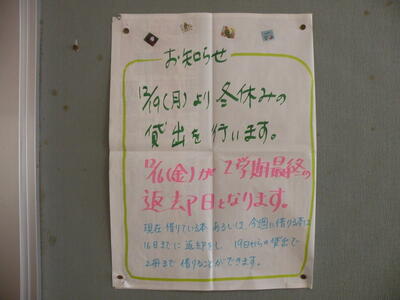 お知らせ
12/19(月)より冬休みの
貸出を行います。
12/16(金)が2学期最終の
返却日となります。
現在借りている本あるいは、今週に借りる本は
16日までに返却をし、19日からの貸出で
2冊まで借りることができます。